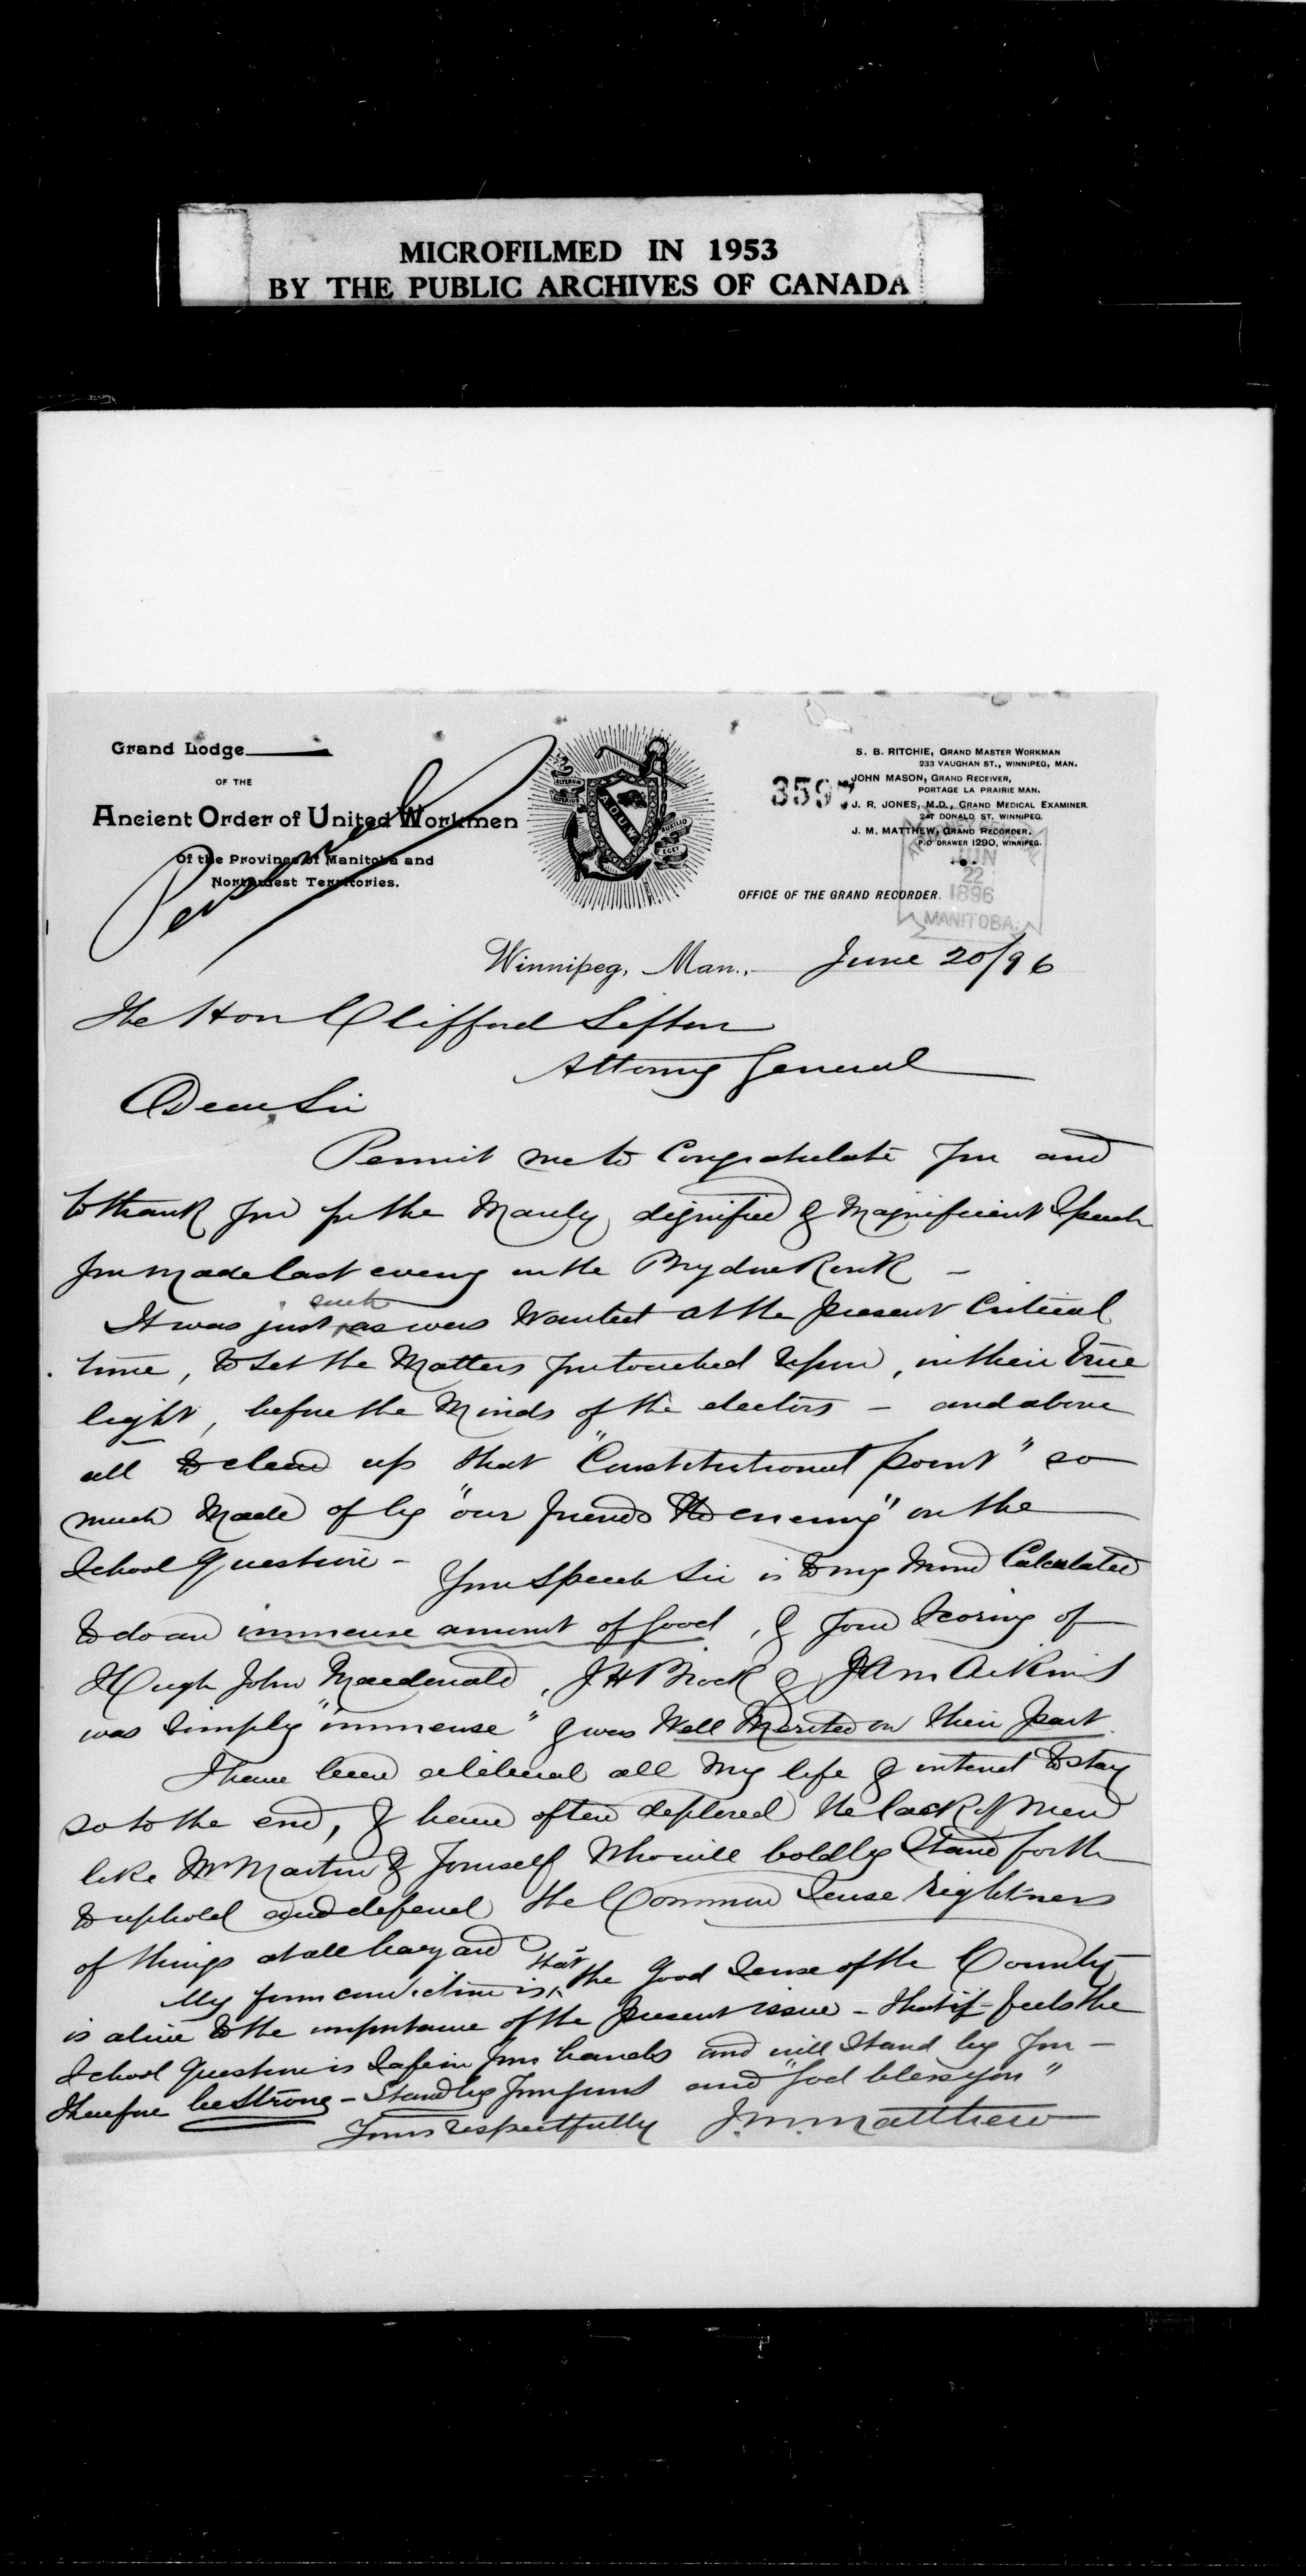 MICROFILMED IN 1953
BY THE PUBLIC ARCHIVES OF CANADA
Grand Lodge
OF THE
Ancient Order of United Workmen
Of the Province of Manitoba and
Northwest Territories.
Personal
ALTERUM ALTERIUS
A.O.U.W.
AUXILIO EGET
3597
S. B. RITCHIE, GRAND MASTER WORKMAN
233 VAUGHAN ST., WINNIPEG, MAN.
JOHN MASON, GRAND RECEIVER,
PORTAGE LA PRAIRIE MAN.
J. R. JONES, M.D., GRAND MEDICAL EXAMINER.
247 DONALD ST. WINNIPEG.
J. M. MATTHEW, GRAND RECORDER.
P.O DRAWER 1290, WINNIPEG.
OFFICE OF THE GRAND RECORDER.
ATTORNEY GENERAL
JUN
22
1896
MANITOBA.
Winnipeg, Man., June 20/96
The Hon Clifford Sifton
Attorney General
Dear Sir
Permit me to Congratulate you and
to thank you for the Manly dignified & Magnificent Speech
you made last eveng in the Brydon Rink –
It was just such as was Wanted at the present Critical
time, to set the Matters you touched upon, in their true
light, before the Minds of the electors – and above
all to clear up that "Constitutional point" so
much Made of by "our friends the enemy" on the
School Question –
Your Speech Sir is to my Mind Calculated
to do an immense amount of good, & your Scoring of
Hugh John Macdonald, J H Brock & J A M Aikins
was Simply "immense" & was Well Merited on their part.
I have been a liberal all My life & intend to stay
so to the end, & have often deplored the lack of Men
like Mr Martin & Yourself Who will boldly Stand forth
to uphold and defend the Common Sense rightness
of things at all hazard
My firm conviction is, that the Good Sense of the County
is alive to the importance of the present issue – that it feels the
School Question is Safe in your hands and will Stand by you –
therefore be Strong – Stand by your guns and "God bless you"
Yours respectfully J. M. Matthew